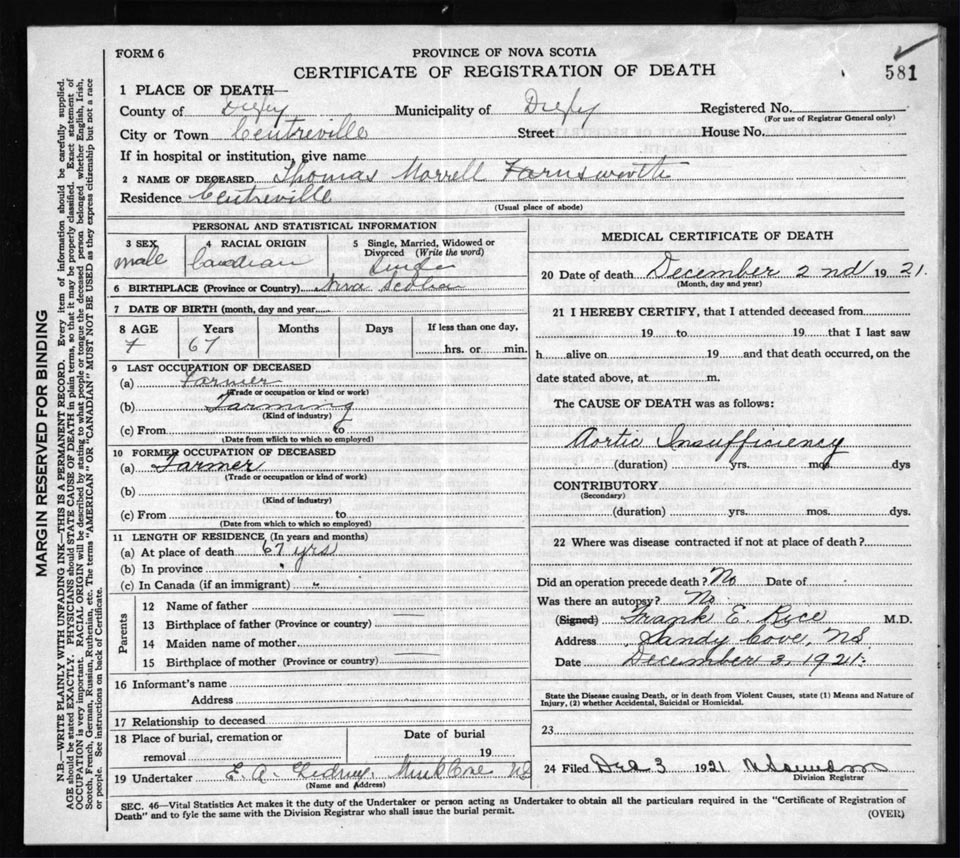 FORM 6
PROVINCE OF NOVA SCOTIA
CERTIFICATE OF REGISTRATION OF DEATH
581
1 PLACE OF DEATH—
County of Digby Municipality of Digby Registered No.
(For use of Registrar General only)
City or Town Centreville Street House No.
If in hospital or institution, give name
2 NAME OF DECEASED Thomas Morrell Farnsworth
Residence Centreville
(Usual place of abode)
PERSONAL AND STATISTICAL INFORMATION
3 SEX male
4 RACIAL ORIGIN Canadian
5 Single, Married, Widowed or Divorced (Write the word) Single
6 BIRTHPLACE (Province or Country) Nova Scotia
7 DATE OF BIRTH (month, day and year)
8 AGE Years Months Days If less than one day,
67 hrs. or min.
9 LAST OCCUPATION OF DECEASED
(a) Farmer
(Trade or occupation or kind or work)
(b) Farming
(Kind of industry)
(c) From to
(Date from which to which so employed)
10 FORMER OCCUPATION OF DECEASED
(a) Farmer
(Trade or occupation or kind of work)
(b)
(Kind of industry)
(c) From to
(Date from which to which so employed)
11 LENGTH OF RESIDENCE (In years and months)
(a) At place of death 67 yrs
(b) In province "
(c) In Canada (if an immigrant) "
Parents
12 Name of father
13 Birthplace of father (Province or country)
14 Maiden name of mother
15 Birthplace of mother (Province or country)
16 Informant's name
Address
17 Relationship to deceased
18 Place of burial, cremation or removal
Date of burial
19
19 Undertaker E. A. Gidney. Mink Cove NS
(Name and Address)
MEDICAL CERTIFICATE OF DEATH
20 Date of death December 2nd 1921.
(Month, day and year)
21 I HEREBY CERTIFY, that I attended deceased from
19 to 19 that I last saw
h alive on 19 and that death occurred, on the
date stated above, at m.
The CAUSE OF DEATH was as follows:
Aortic Insufficiency
(duration) yrs. mos. dys
CONTRIBUTORY
(Secondary)
(duration) yrs. mos. dys.
22 Where was disease contracted if not at place of death?
Did an operation precede death? No Date of
Was there an autopsy? No
(Signed) Frank E. Rice M.D.
Address Sandy Cove, NS.
Date December 3, 1921.
State the Disease causing Death, or in death from Violent Causes, state (1) Means and Nature of
Injury, (2) whether Accidental, Suicidal or Homicidal.
23
24 Filed Dec 3 1921
Division Registrar
SEC. 46—Vital Statistics Act makes it the duty of the Undertaker or person acting as Undertaker to obtain all the particulars required in the "Certificate of Registration of
Death" and to fyle the same with the Division Registrar who shall issue the burial permit.
(OVER)
MARGIN RESERVED FOR BINDING
N.B.—WRITE PLAINLY WITH UNFADING INK—THIS IS A PERMANENT RECORD. Every item of information should be carefully supplied.
AGE should be stated EXACTLY. PHYSICIANS should STATE CAUSE OF DEATH in plain terms, so that it may be properly classified. Exact statement of
OCCUPATION is very important. RACIAL ORIGIN will be described by stating to what people or tongue the deceased person belonged whether English, Irish,
Scotch, French, German, Russian, Ruthenian, etc. The terms "AMERICAN" OR "CANADIAN" MUST NOT BE USED as they express citizenship but not a race
or people. See instructions on back of Certificate.